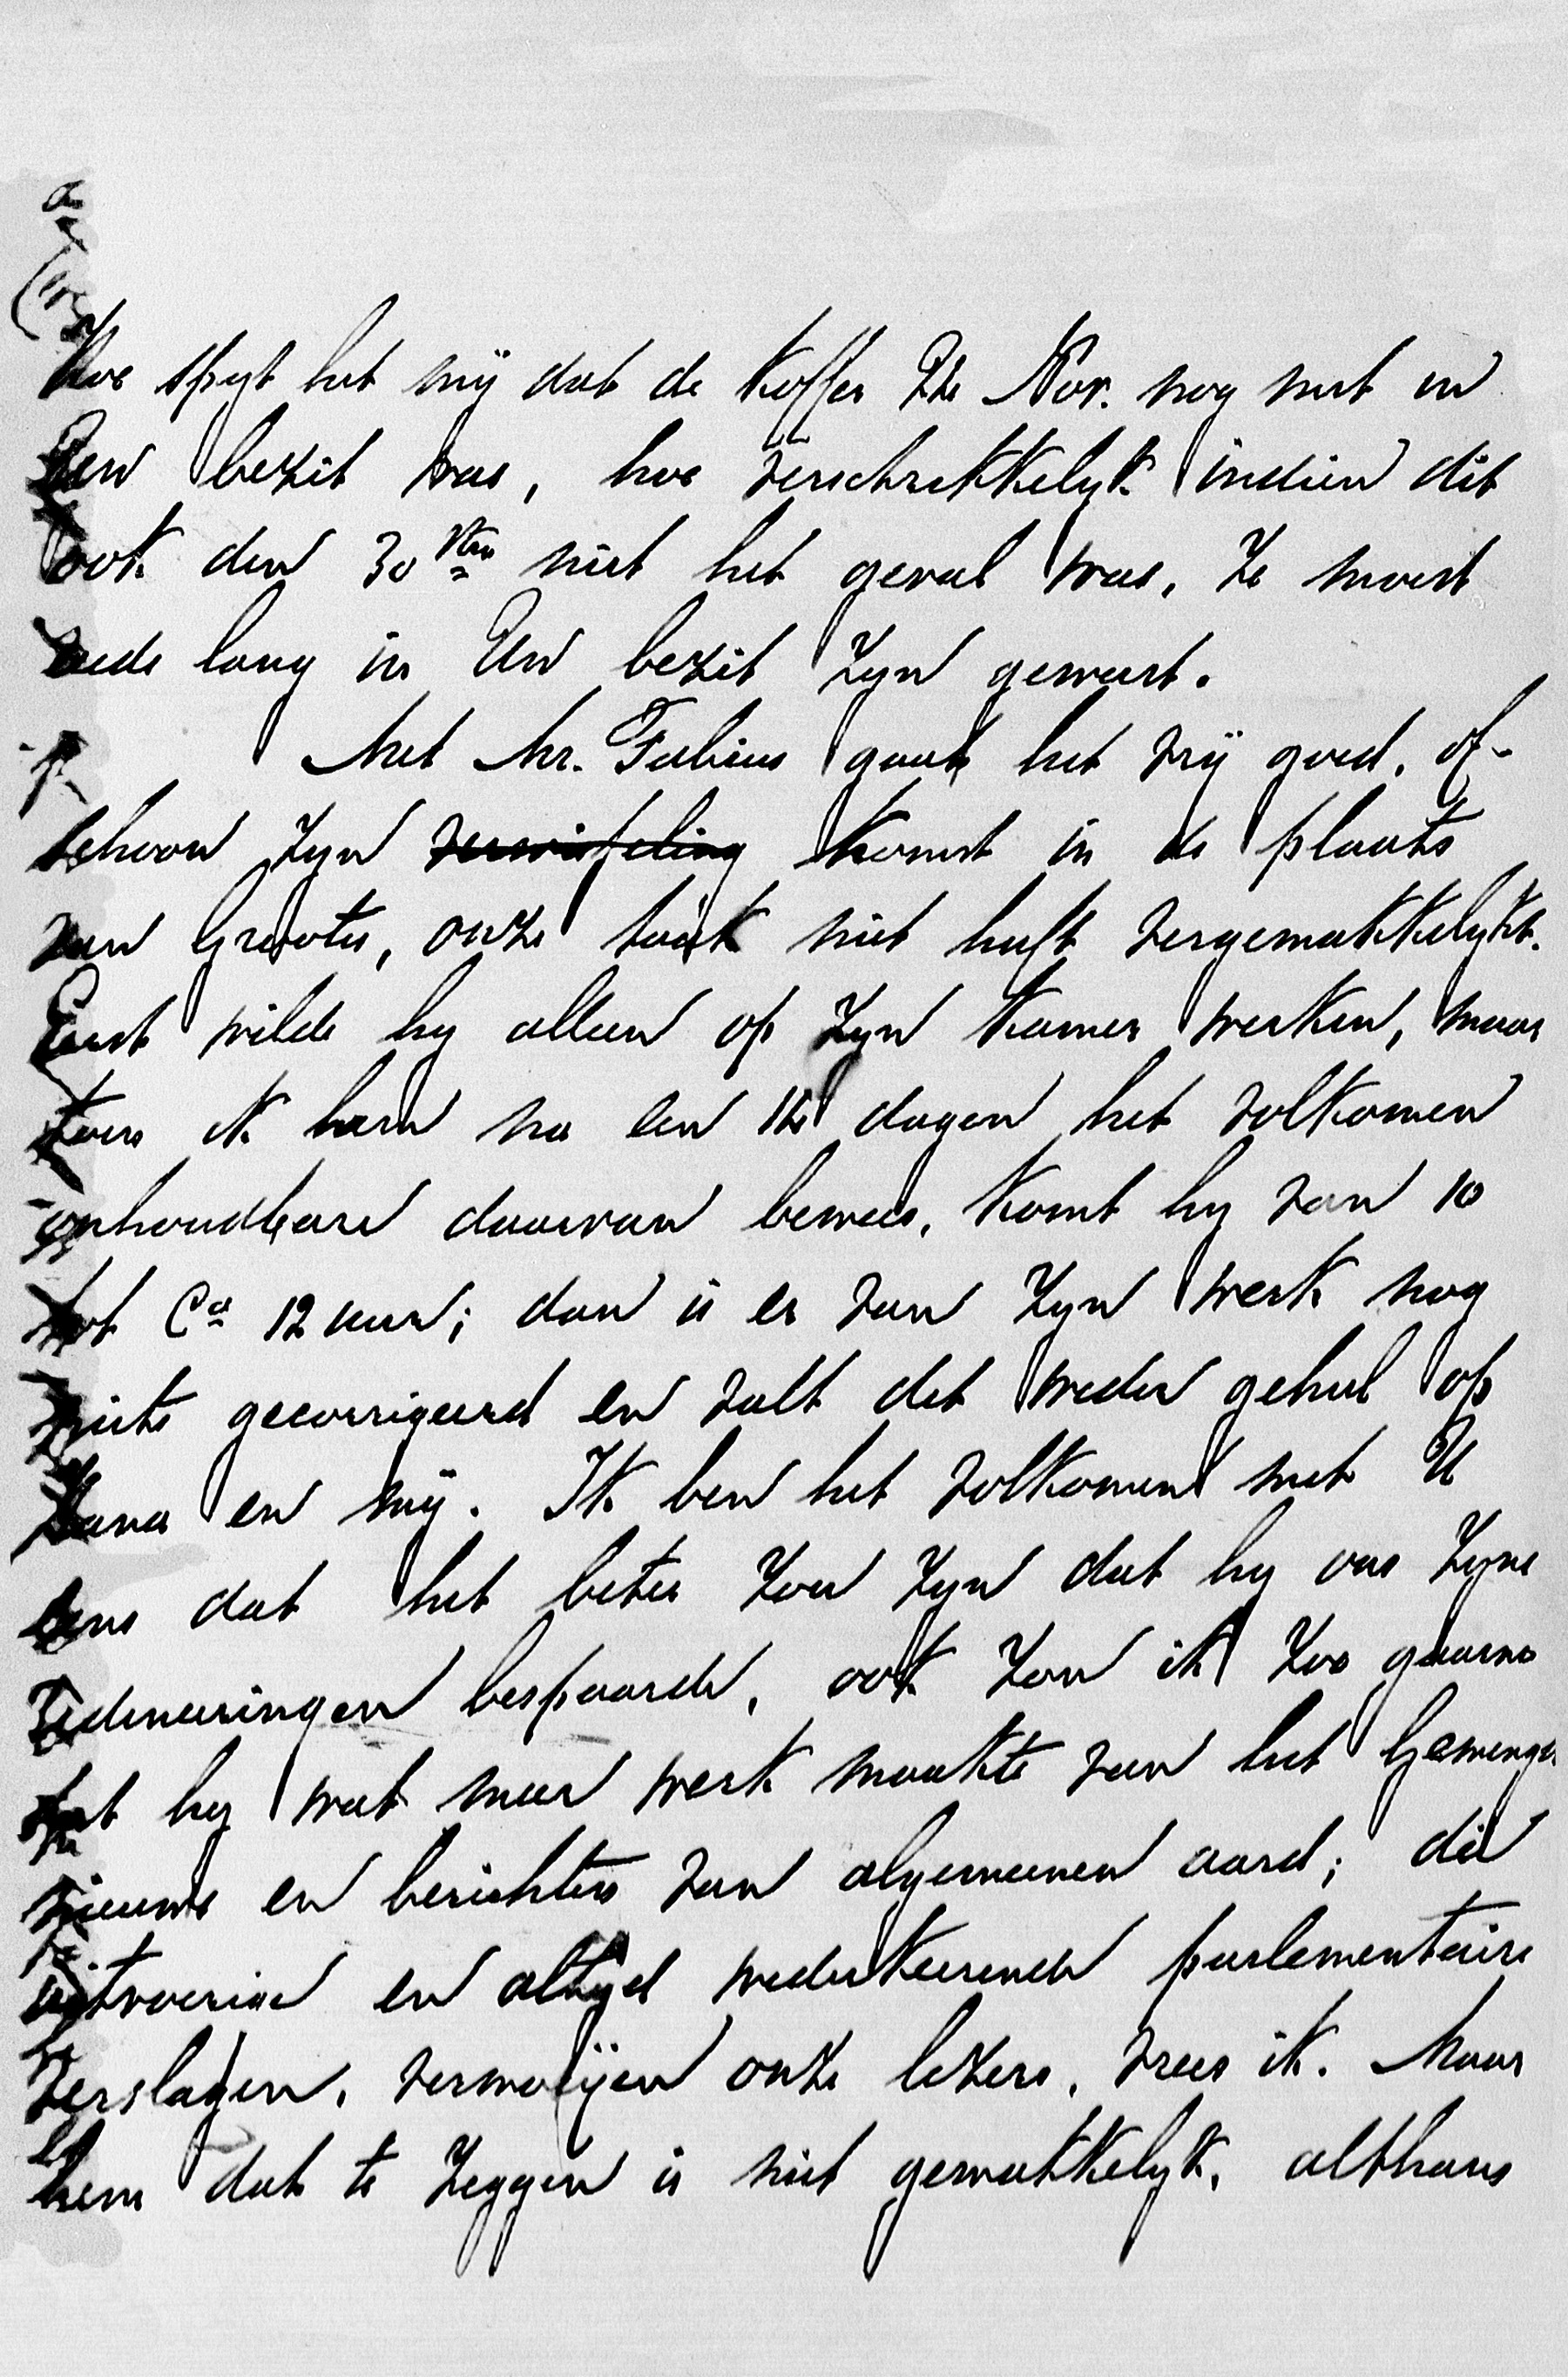 Hoe spijt het mij dat de koffer 22e Nov. nog niet in
Uw bezit was, hoe verschrikkelijk indien dit
ook den 30sten niet het geval was. Ze moest
reeds lang in Uw bezit zijn geweest.
Met Mr. Fabius gaat het vrij goed, of-
schoon zijn verwisseling komst in de plaats
van Groote, onze taak niet heeft vergemakkelijkt.
Eerst wilde hij alleen op zijn kamer werken, maar
toen ik hem na een 14 dagen het volkomen
onhoudbare daarvan bewees, komt hij van 10
tot Ca 12 uur; dan is er van zijn werk nog
niets gecorrigeerd en valt dit weder geheel op
en mij. Ik ben het volkomen met U
eens dat het beter zou zijn dat hij ons zijne
redeneeringen bespaarde, ook zou ik zoo gaarne
dat hij wat meer werk maakte van het Gemengd
nieuws en berichten van algemeenen aard; die
uitvoerige en altijd wederkeerende parlementaire
verslagen, vermoeijen onze lezers, vrees ik. Maar
hem dat te zeggen is niet gemakkelijk, althans